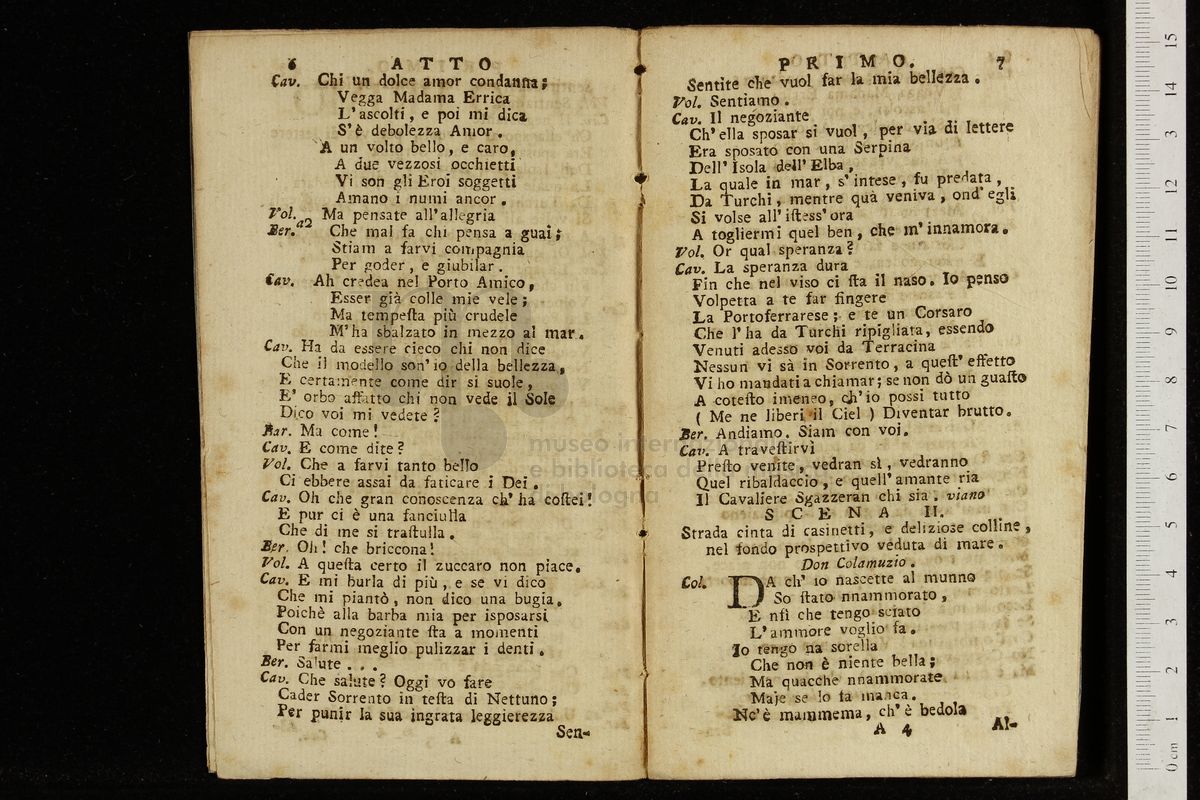 6 ATTO
Cav. Chi un dolce amor condanna;
Vegga Madama Errica
L'ascolti, e poi mi dica
S'è debolezza Amor.
A un volto bello, e caro,
A due vezzosi occhietti
Vi son gli Eroi soggetti
Amano i numi ancor.
Vol. a2 Ma pensate all'allegria
Ber. Che mal fa chi pensa a guai;
Stiam a farvi compagnia
Per goder, e giubilar.
Cav. Ah credea nel Porto Amico,
Esser già colle mie vele;
Ma tempeſta più crudele
M'ha sbalzato in mezzo al mar.
Cav. Ha da essere cieco chi non dice
Che il modello son'io della bellezza,
E certamente come dir si suole,
E' orbo affatto chi non vede il Sole
Dico voi mi vedete?
Bar. Ma come!
Cav. E come dite?
Vol. Che a farvi tanto bello
Ci ebbere assai da faticare i Dei.
Cav. Oh che gran conoscenza ch'ha coſtei!
E pur ci è una fanciulla
Che di me si traſtulla.
Ber. Oh! che briccona!
Vol. A queſta certo il zuccaro non piace.
Cav. E mi burla di più, e se vi dico
Che mi piantò, non dico una bugia,
Poichè alla barba mia per isposarsi
Con un negoziante ſta a momenti
Per farmi meglio pulizzar i denti.
Ber. Salute . . .
Cav. Che salute? Oggi vo fare
Cader Sorrento in teſta di Nettuno;
Per punir la sua ingrata leggierezza
Sen-
PRIMO. 7
Sentite che vuol far la mia bellezza.
Vol. Sentiamo.
Cav. Il negoziante
Ch'ella sposar si vuol, per via di lettere
Era sposato con una Serpina
Dell'Isola dell'Elba,
La quale in mar, s'intese, fu predata,
Da Turchi, mentre quà veniva, ond'egli
Si volse all'iſtess'ora
A togliermi quel ben, che m'innamora.
Vol. Or qual speranza?
Cav. La speranza dura
Fin che nel viso ci ſta il naso. Io penso
Volpetta a te far fingere
La Portoferrarese; e te un Corsaro
Che l'ha da Turchi ripigliata, essendo
Venuti adesso voi da Terracina
Nessun vi sà in Sorrento, a queſt'effetto
Vi ho mandati a chiamar; se non dò un guaſto
A coteſto imeneo, ch'io possi tutto
( Me ne liberi il Ciel ) Diventar brutto.
Ber. Andiamo. Siam con voi.
Cav. A traveſtirvi
Preſto venite, vedran sì, vedranno
Quel ribaldaccio, e quell'amante ria
Il Cavaliere Sgazzeran chi sia. viano
SCENA II.
Strada cinta di casinetti, e deliziose colline,
nel fondo prospettivo veduta di mare.
Don Colamuzio.
Col. DA ch'io nascette al munno
So ſtato nnammorato,
E nfì che tengo sciato
L'ammore voglio fa.
Io tengo na sorella
Che non è niente bella;
Ma quacche nnammorate
Maje se lo fa manca.
Nc'è mammema, ch'è bedola
A 4 Al-
museo internazionale
e biblioteca della musica
di bologna
15
14
13
12
11
10
9
8
7
6
5
4
3
2
1
0 cm